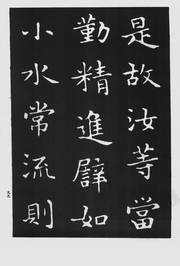 是故汝等當
勤精進譬如
小水常流則